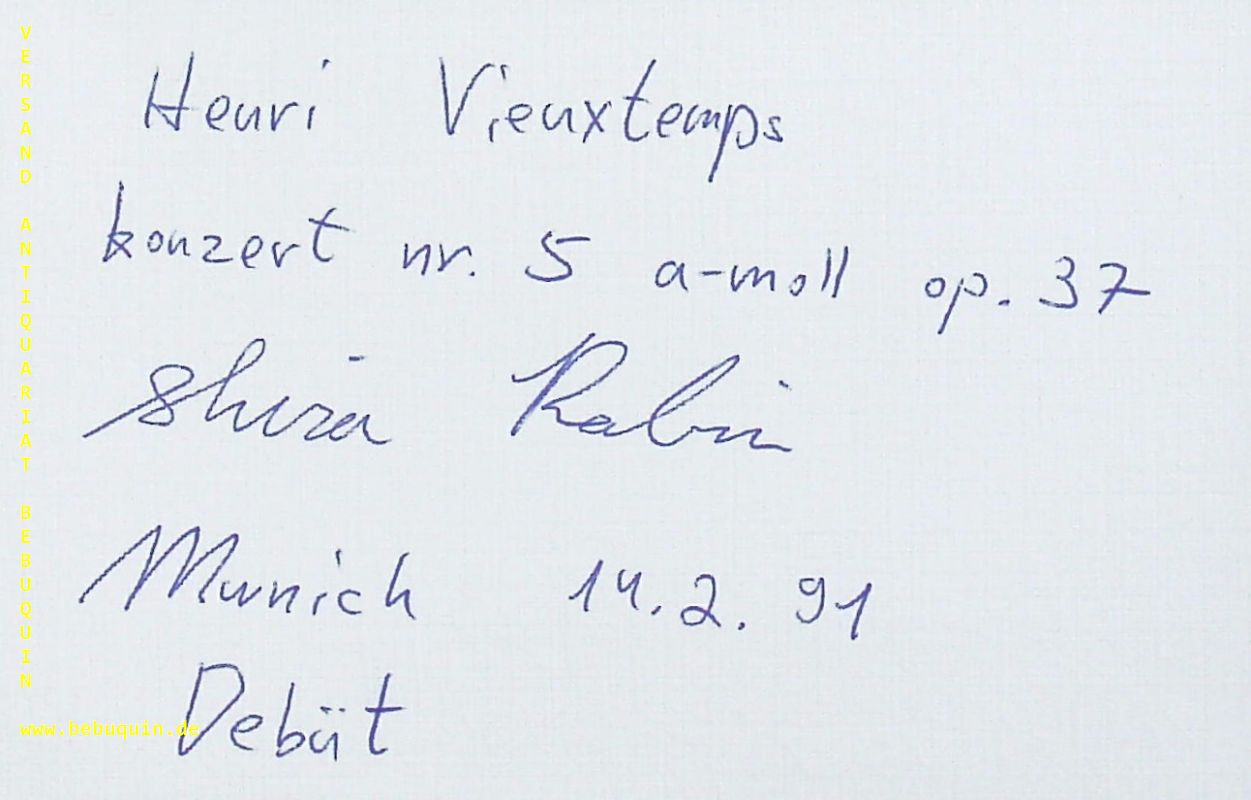 Henri Vieuxtemps
konzert nr. 5 a-moll op. 37
Shira Rabin
Munich 14.2.91
Debüt
VERSAND ANTIQUARIAT BEBUQUIN
www.bebuquin.de